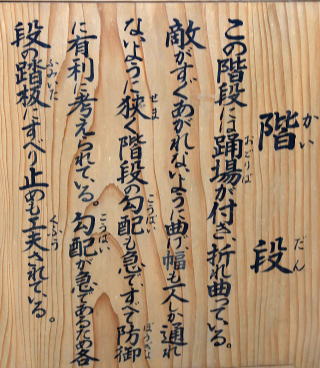 階段
かいだん
この階段には踊場が付き折れ曲っている。
おどりば
敵がすぐあがれないように曲げ、幅も一人が通れ
ないように狭く階段の勾配も急で、すべて防御
せま
こうばい
ぼうぎょ
に有利に考えられている。勾配が急であるため各
こうばい
段の踏板にすべり止めも工夫されている。
ふみいた
くふう